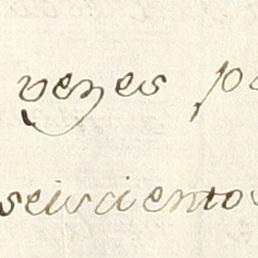 vezes pa
seiscientos